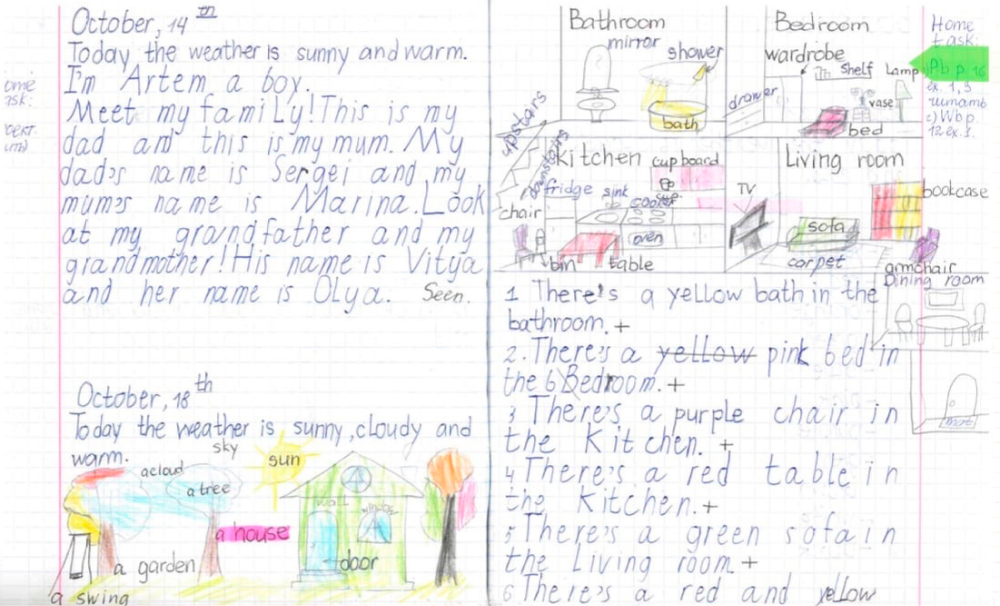 October, 14th
Today the weather is sunny and warm.
I'm Artem a boy.
Meet my famiLy! This is my
dad and this is my mum. My
dad's name is Sergei and my
mum's name is Marina. Look
at my grandfather and my
grandmother! His name is Vitya
and her name is Olya. Seen.
October, 18th
Today the weather is sunny, cloudy and
warm.
sky
sun
a cloud
a tree
wall
window
a house
door
a garden
a swing
Bathroom
mirror
shower
bath
Bedroom
wardrobe
shelf
Lamp
vase
drawer
bed
upstairs
downstairs
Kitchen
cupboard
cup
fridge
sink
cooker
chair
oven
bin
table
Living room
TV
bookcase
sofa
carpet
armchair
Dining room
Home
task:
Pb p. 16
ex. 1, 3
читать
c) Wb p.
12 ex. 1.
1 There's a yellow bath in the
bathroom. +
2. There's a yellow pink bed in
the 6 Bedroom. +
3 There's a purple chair in
the Kitchen. +
4 There's a red table in
the Kitchen. +
5 There's a green sofa in
the Living room. +
6 There's a red and yellow